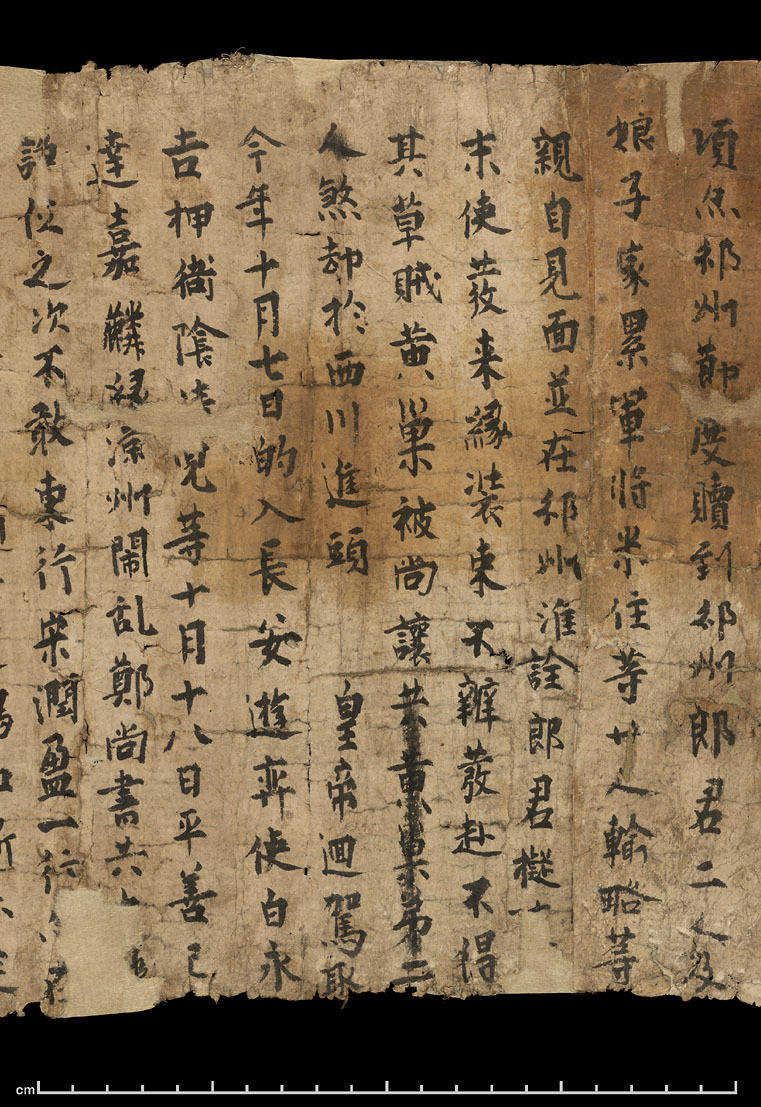 邠州節度贖到邠州郎君二人及
娘子家累軍將米住等廿人輸略等
親自見面並在邠州淮詮郎君擬
末使發来緣裝束不辦發赴不得
其草賊黄巢被尚讓共黄巢弟二
人煞却於西川進頭 皇帝迴駕取
今年十月七日的入長安遊弈使白永
吉押衙陰清兒等十月十八日平善已
達嘉麟緣涼州鬧乱鄭尚書共
諍位之次不敢東行宋潤盈一行
cm